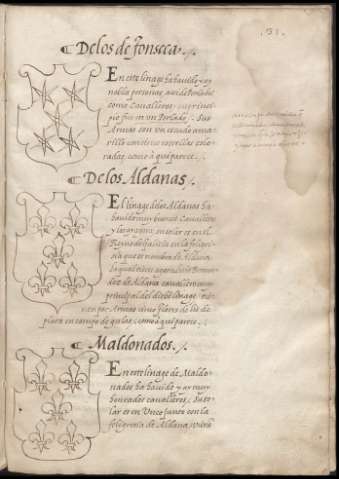 .31.
De los de fonseca ./.
En este linage ha havido, y ay
nobles personas, ansi de Perlados
como Cavalleros: su princi-
pio fue en un Perlado. Sus
Armas son un escudo ama-
rillo con cinco estrellas colo-
radas, como a qui parece ./.
De los Aldanas
El linage de los Aldanas ha
havido muy buenos Cavalleros
y los ay su solar es en el
Reyno de Galicia en la feligre-
sia que se nombra de Aldana
la qual
dez de Aldana cavallero muy
principal del dicho linage
nen por Armas cinco flores de lis de
plata en campo de gulas, como a qui parece ./.
Maldonados ./.
En este linage de Maldo-
nados ha havido y ay muy
honrados cavalleros. Su so-
lar es en Unco junto con la
feligresia de Aldana